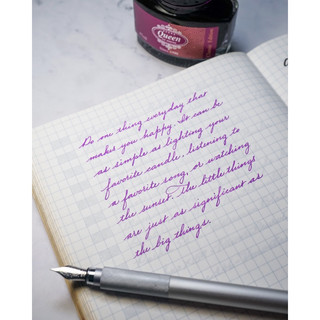 Queen
Do one thing everyday that
makes you happy. It can be
as simple as lighting your
favorite candle, listening to
a favorite song, or watching
the sunset. The little things
are just as significant as
the big things.